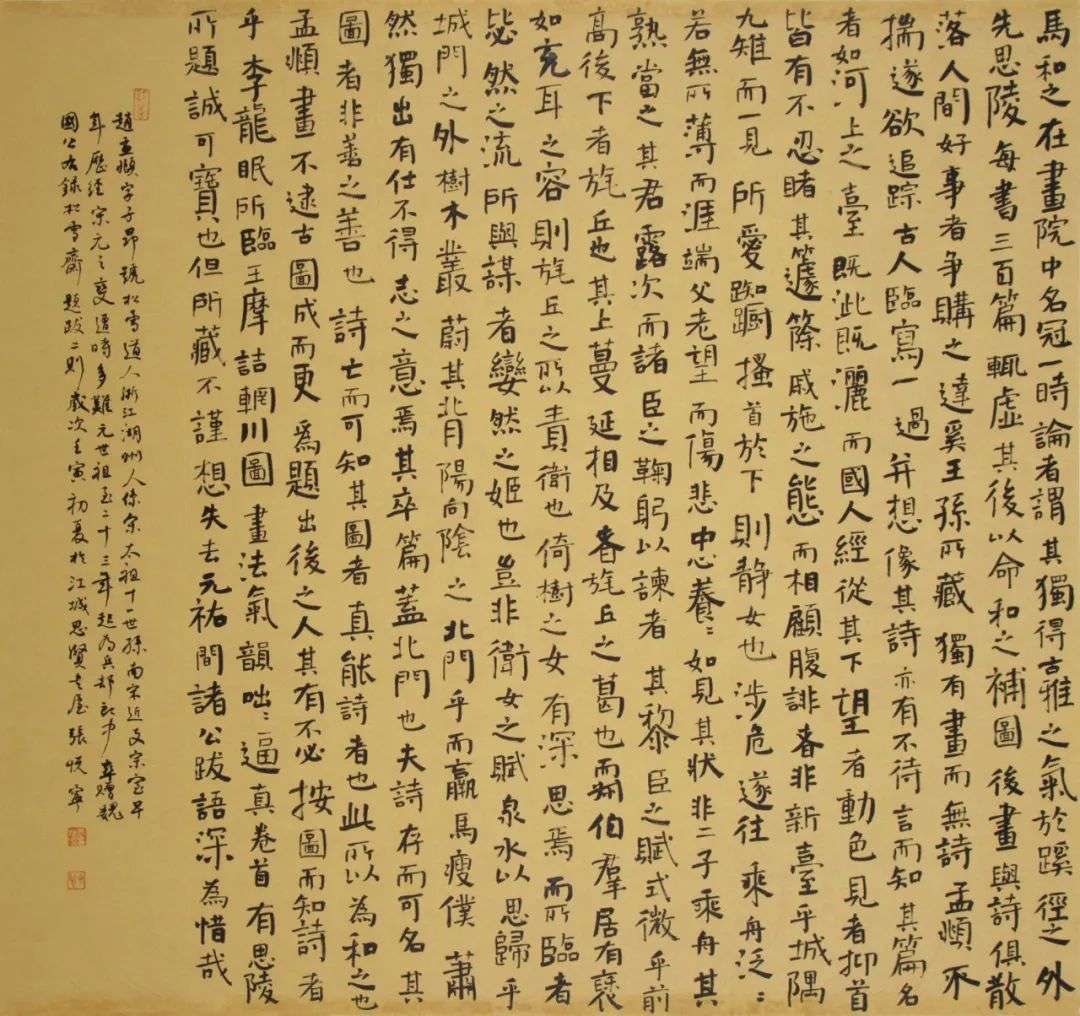 馬和之在畫院中名冠一時論者謂其獨得古雅之氣於蹊徑之外
先思陵每書三百篇輒虛其後以命和之補圖後畫與詩俱散
落人間好事者爭購之達奚王孫所藏獨有畫而無詩孟頫不
揣遂欲追踪古人臨寫一過并想像其詩亦有不待言而知其篇名
者如河上之臺既泚既灑而國人經從其下望者動色見者抑首
皆有不忍睹其籧篨戚施之態而相顧腹誹者非新臺乎城隅
九雉而一見所愛踟躕搔首於下則靜女也涉危遂往乘舟泛〻
若無所薄而涯端父老望而傷悲中心養〻如見其狀非二子乘舟其
孰當之其君露次而諸臣之鞠躬以諫者其黎臣之賦式微乎前
高後下者旄丘也其上蔓延相及者旄丘之葛也而叔伯羣居有褎
如充耳之容則旄丘之所以責衛也倚樹之女有深思焉而所臨者
毖然之流所與謀者孌然之姬也豈非衛女之賦泉水以思歸乎
城門之外樹木叢蔚其北背陽向陰之北門乎而羸馬瘦僕蕭
然獨出有仕不得志之意焉其卒篇蓋北門也夫詩存而可名其
圖者非善之善也詩亡而可知其圖者真能詩者也此所以為和之也
孟頫畫不逮古圖成而更為題出後之人其有不必按圖而知詩者
乎李龍眠所臨王摩詰輞川圖畫法氣韻咄〻逼真卷首有思陵
所題誠可寶也但所藏不謹想失去元祐間諸公跋語深為惜哉
趙孟頫字子昂號松雪道人浙江湖州人係宋太祖十一世孫南宋近支宗室早
年歷經宋元之變遭時多難元世祖至二十三年起為兵部郎中卒贈魏
國公右錄松雪齋題跋二則歲次壬寅初夏於江城思賢老屋張悅寧